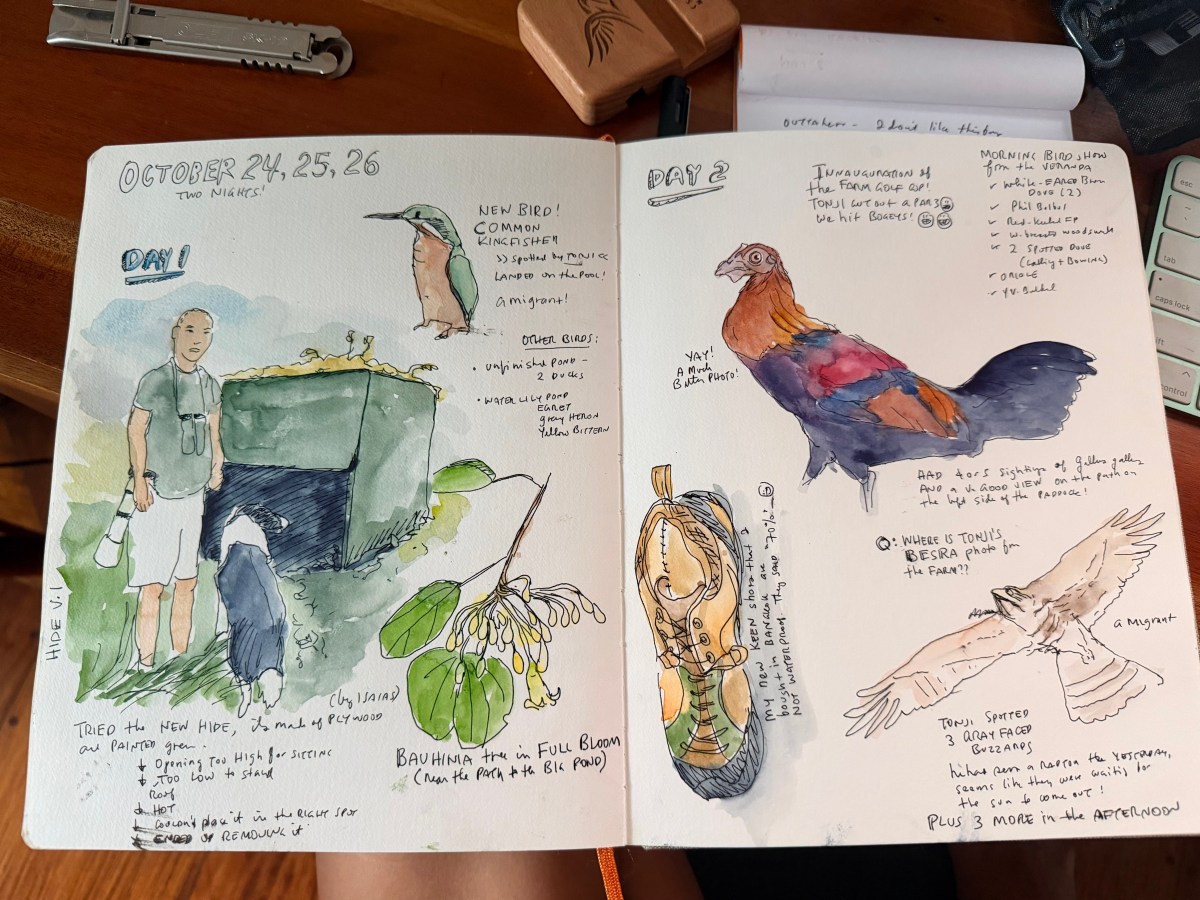 OUTTAKERS - I don't like this
OCTOBER 24, 25, 26
TWO NIGHTS!
DAY 1
NEW BIRD!
COMMON
KINGFISHER
>> Spotted by TONJI <<
LANDED on the POOL!
a migrant!
OTHER BIRDS:
• unfinished POND -
2 DUCKS
• WATER LILY POND
EGRET
grey HERON
Yellow BITTERN
HIDE V.1
(by ISAIAS)
TRIED the NEW HIDE, it's made of PLYWOOD
are PAINTED green.
OPENING TOO HIGH for SITTING
TOO LOW to stand
Roof
HOT
Couldn't place it in the RIGHT SPOT
ENDED UP REMOVING it
BAUHINIA tree in FULL BLOOM
(Near the PATH to the BIG POND)
DAY 2
INNAUGURATION of
the FARM GOLF CUP!
TONJI CUT OUT a PAR 3
we hit BOGEYS!
MORNING BIRD SHOW
from the VERANDA
✓ White-EARED Brown
DOVE (2)
✓ Phil Bulbul
✓ W-breasted woodswallow
✓ 2 SPOTTED DOVE
(Calling + Bowing)
✓ ORIOLE
✓ YV. Bulbul
YAY!
A Much
Better PHOTO!
HAD 4 or 5 sightings of Gallus gallus
AND a V. GOOD VIEW on the path on
the left side of the PADDOCK!
my new KEEN shoes that I
bought in BANGKOK are "70%"
NOT WATERPROOF. They said
Q: WHERE IS TONJI'S
BESRA photo from
the FARM??
a MIGRANT
TONJI SPOTTED
3 GRAY FACED
BUZZARDS
seen a RAPTOR the YESTERDAY,
seems like they were waiting for
the sun to come out!
PLUS 3 MORE in the AFTERNOON
esc
tab
caps lock
shift
control